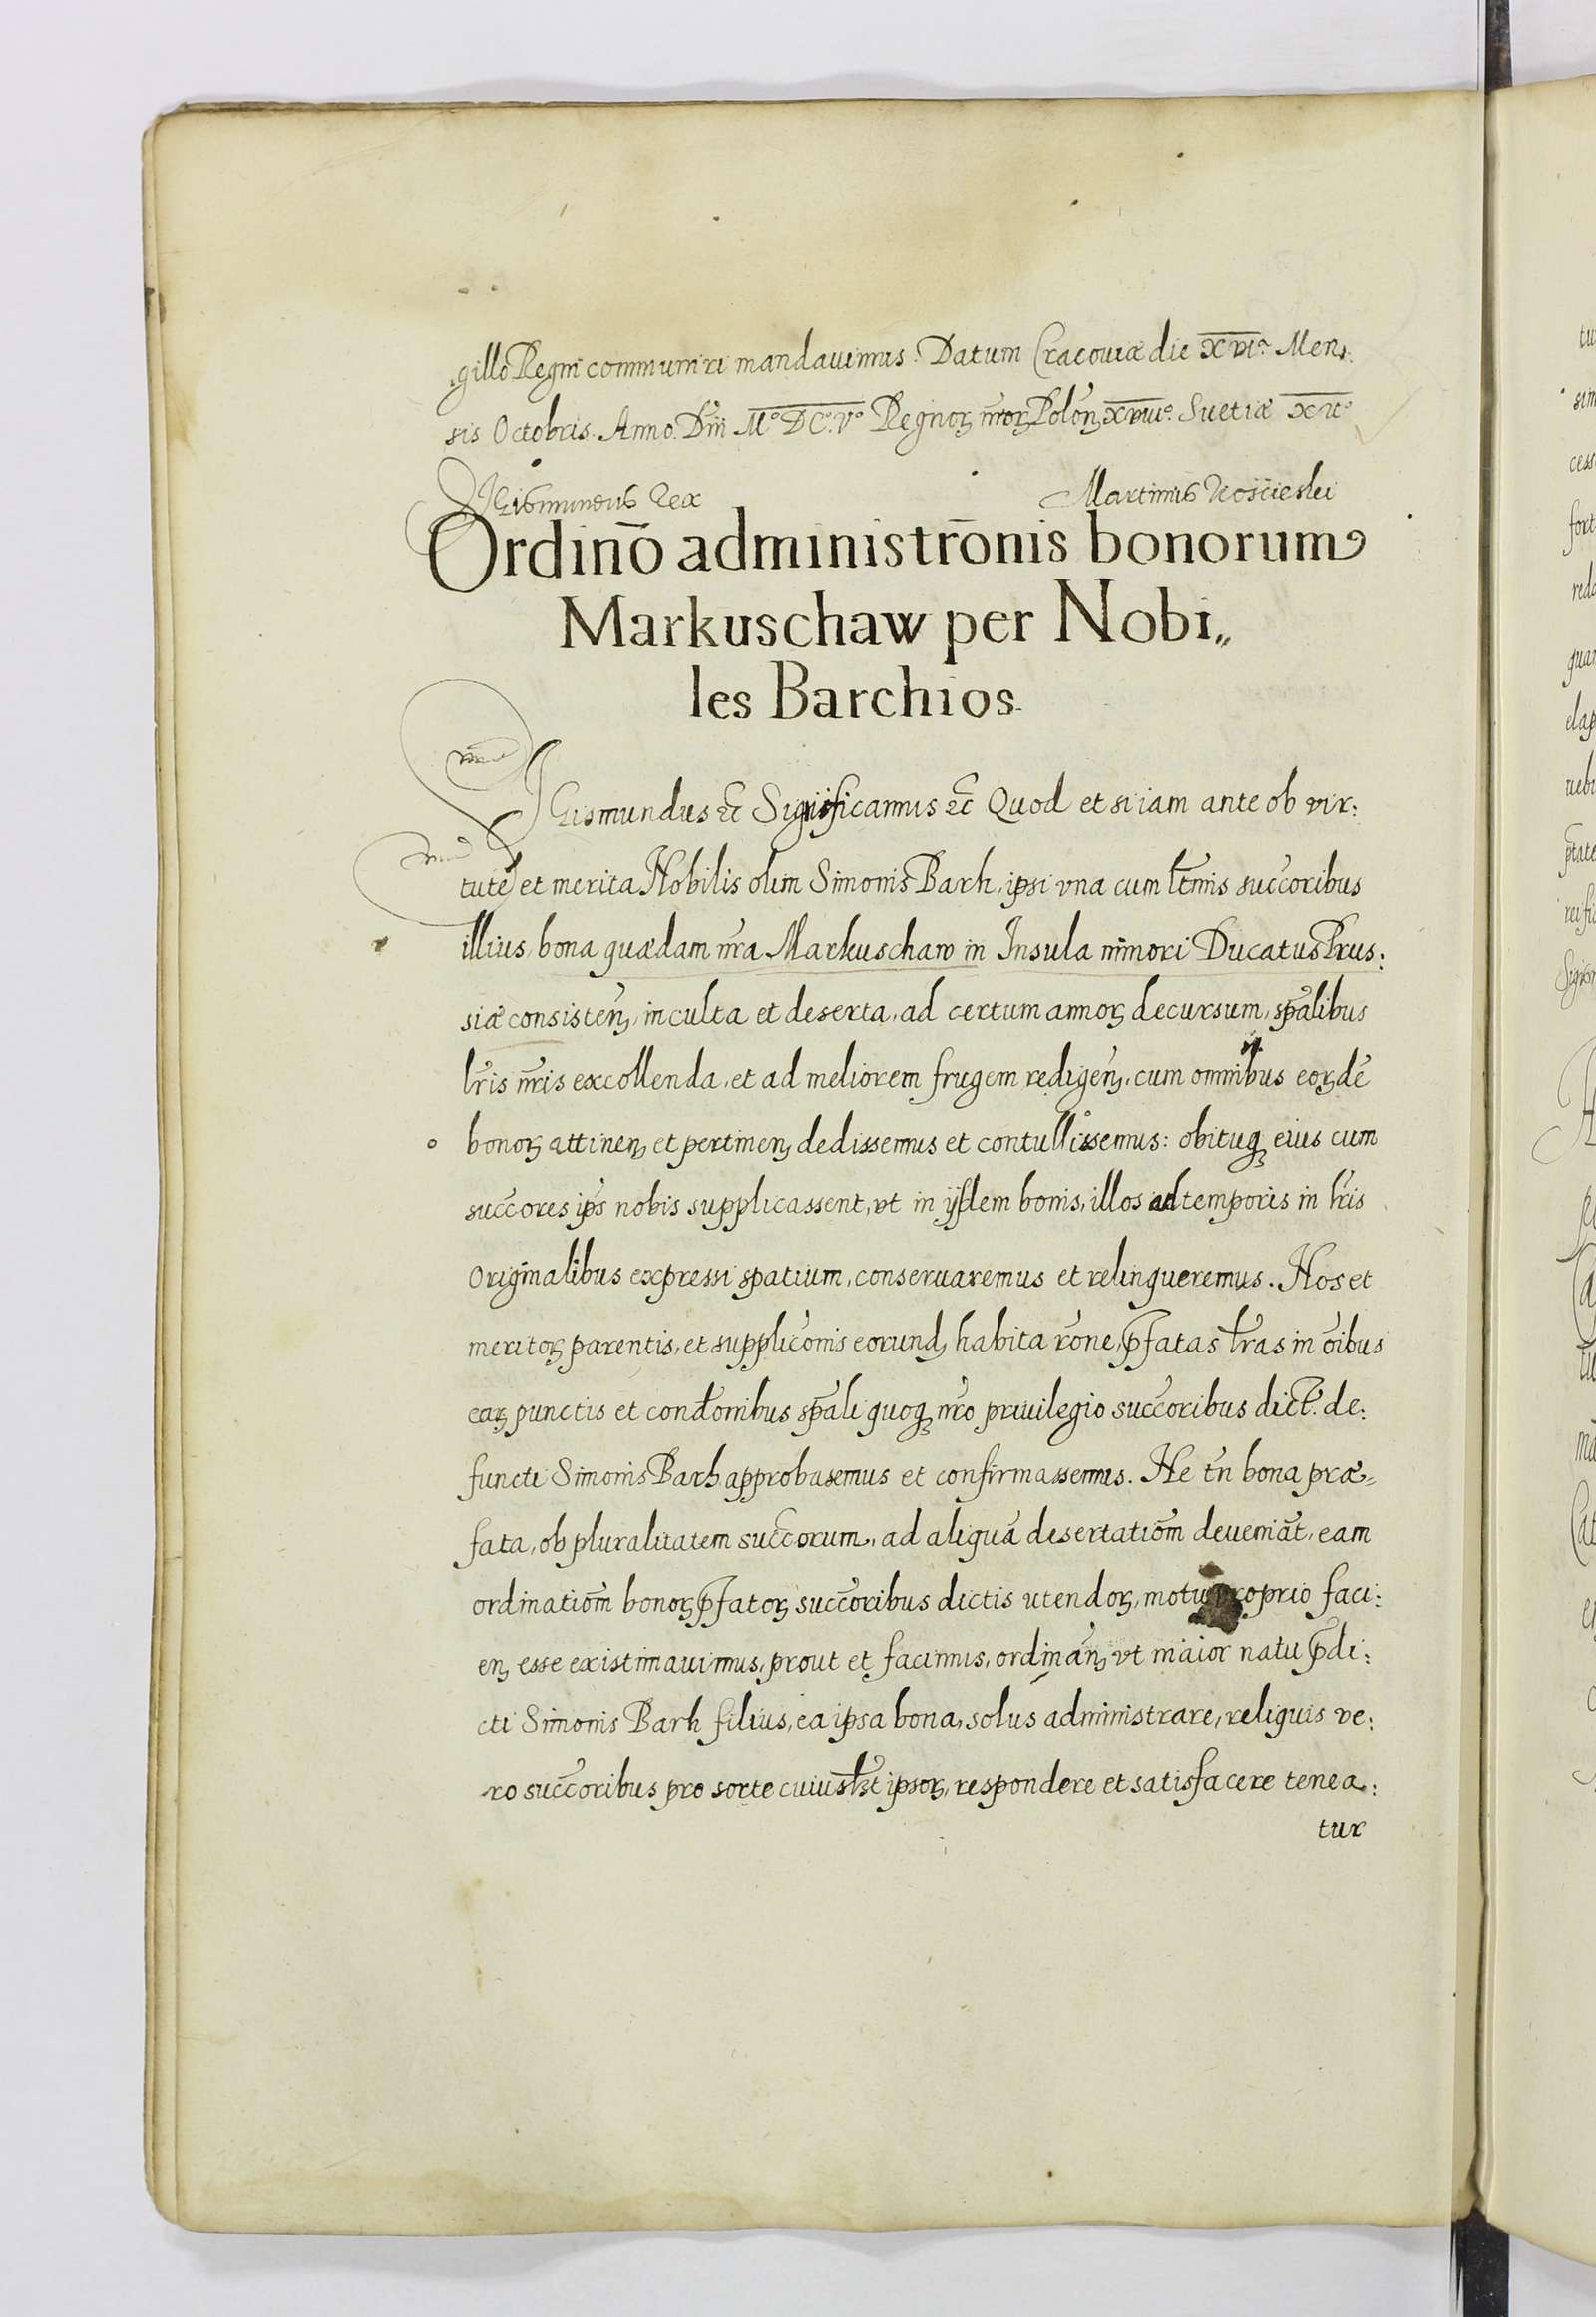 gillo Regni communiri mandauimus. Datum Cracouiæ die XVIᵒ. Men:
sis Octobris. Anno. Dn̄i Mᵒ DCᵒ. Vᵒ Regnoꝝ nr̄oꝝ Polon̄ꝫ XVIIIᵒ. Suetiæ XIIᵒ
SIGismundus Rex Martinus Uościeski
Ordinō administrōnis bonorum
Markuschaw per Nobi„
les Barchios.
SIGismundus ꝛc̄ Significamus ꝛc̄ Quod et si iam ante ob vir:
tutē et merita Nobilis olim Simonis Barh, ipsi vna cum ltīmis succ̄oribus
illius, bona quædam nr̄a Markuschaw in Insula minori Ducatus Prus:
siæ consisten̄ꝫ, inculta et deserta, ad certum annoꝝ decursum, sp̄alibus
lr̄is nr̄is excollenda, et ad meliorem frugem redigen̄ꝫ, cum omnibus eoꝝdē
bonoꝝ attinenꝫ et pertinenꝫ dedissemus et contullissemus: obituqꝫ eius cum
succ̄ores ip̄s nobis supplicassent, vt in ijsdem bonis, illos ad temporis in lr̄is
Originalibus expressi spatium, conseruaremus et relinqueremus. Nos et
meritoꝝ parentis, et supplicōnis eorundꝫ habita rōne, p̄fatas lr̄as in ōibus
eaꝝ punctis et condōnibus sp̄ali quoqꝫ nr̄o priuilegio succ̄oribus dict̄. de:
functi Simonis Barh approbasemus et confirmassemus. Ne tn̄ bona præ=
fata, ob pluralitatem succ̄orum, ad aliquā desertatiōm deueniāt, eam
ordinatiōm bonoꝝ p̄fatoꝝ succ̄oribus dictis utendoꝝ, motu proprio faci:
enꝫ esse existimauimus, prout et facimus, ordinan̄ꝫ vt maior natu p̄di:
cti Simonis Barh filius, ea ipsa bona, solus administrare, reliquis ve:
ro succ̄oribus pro sorte cuiusłꝫt ipsoꝝ, respondere et satisfacere tenea:
tur